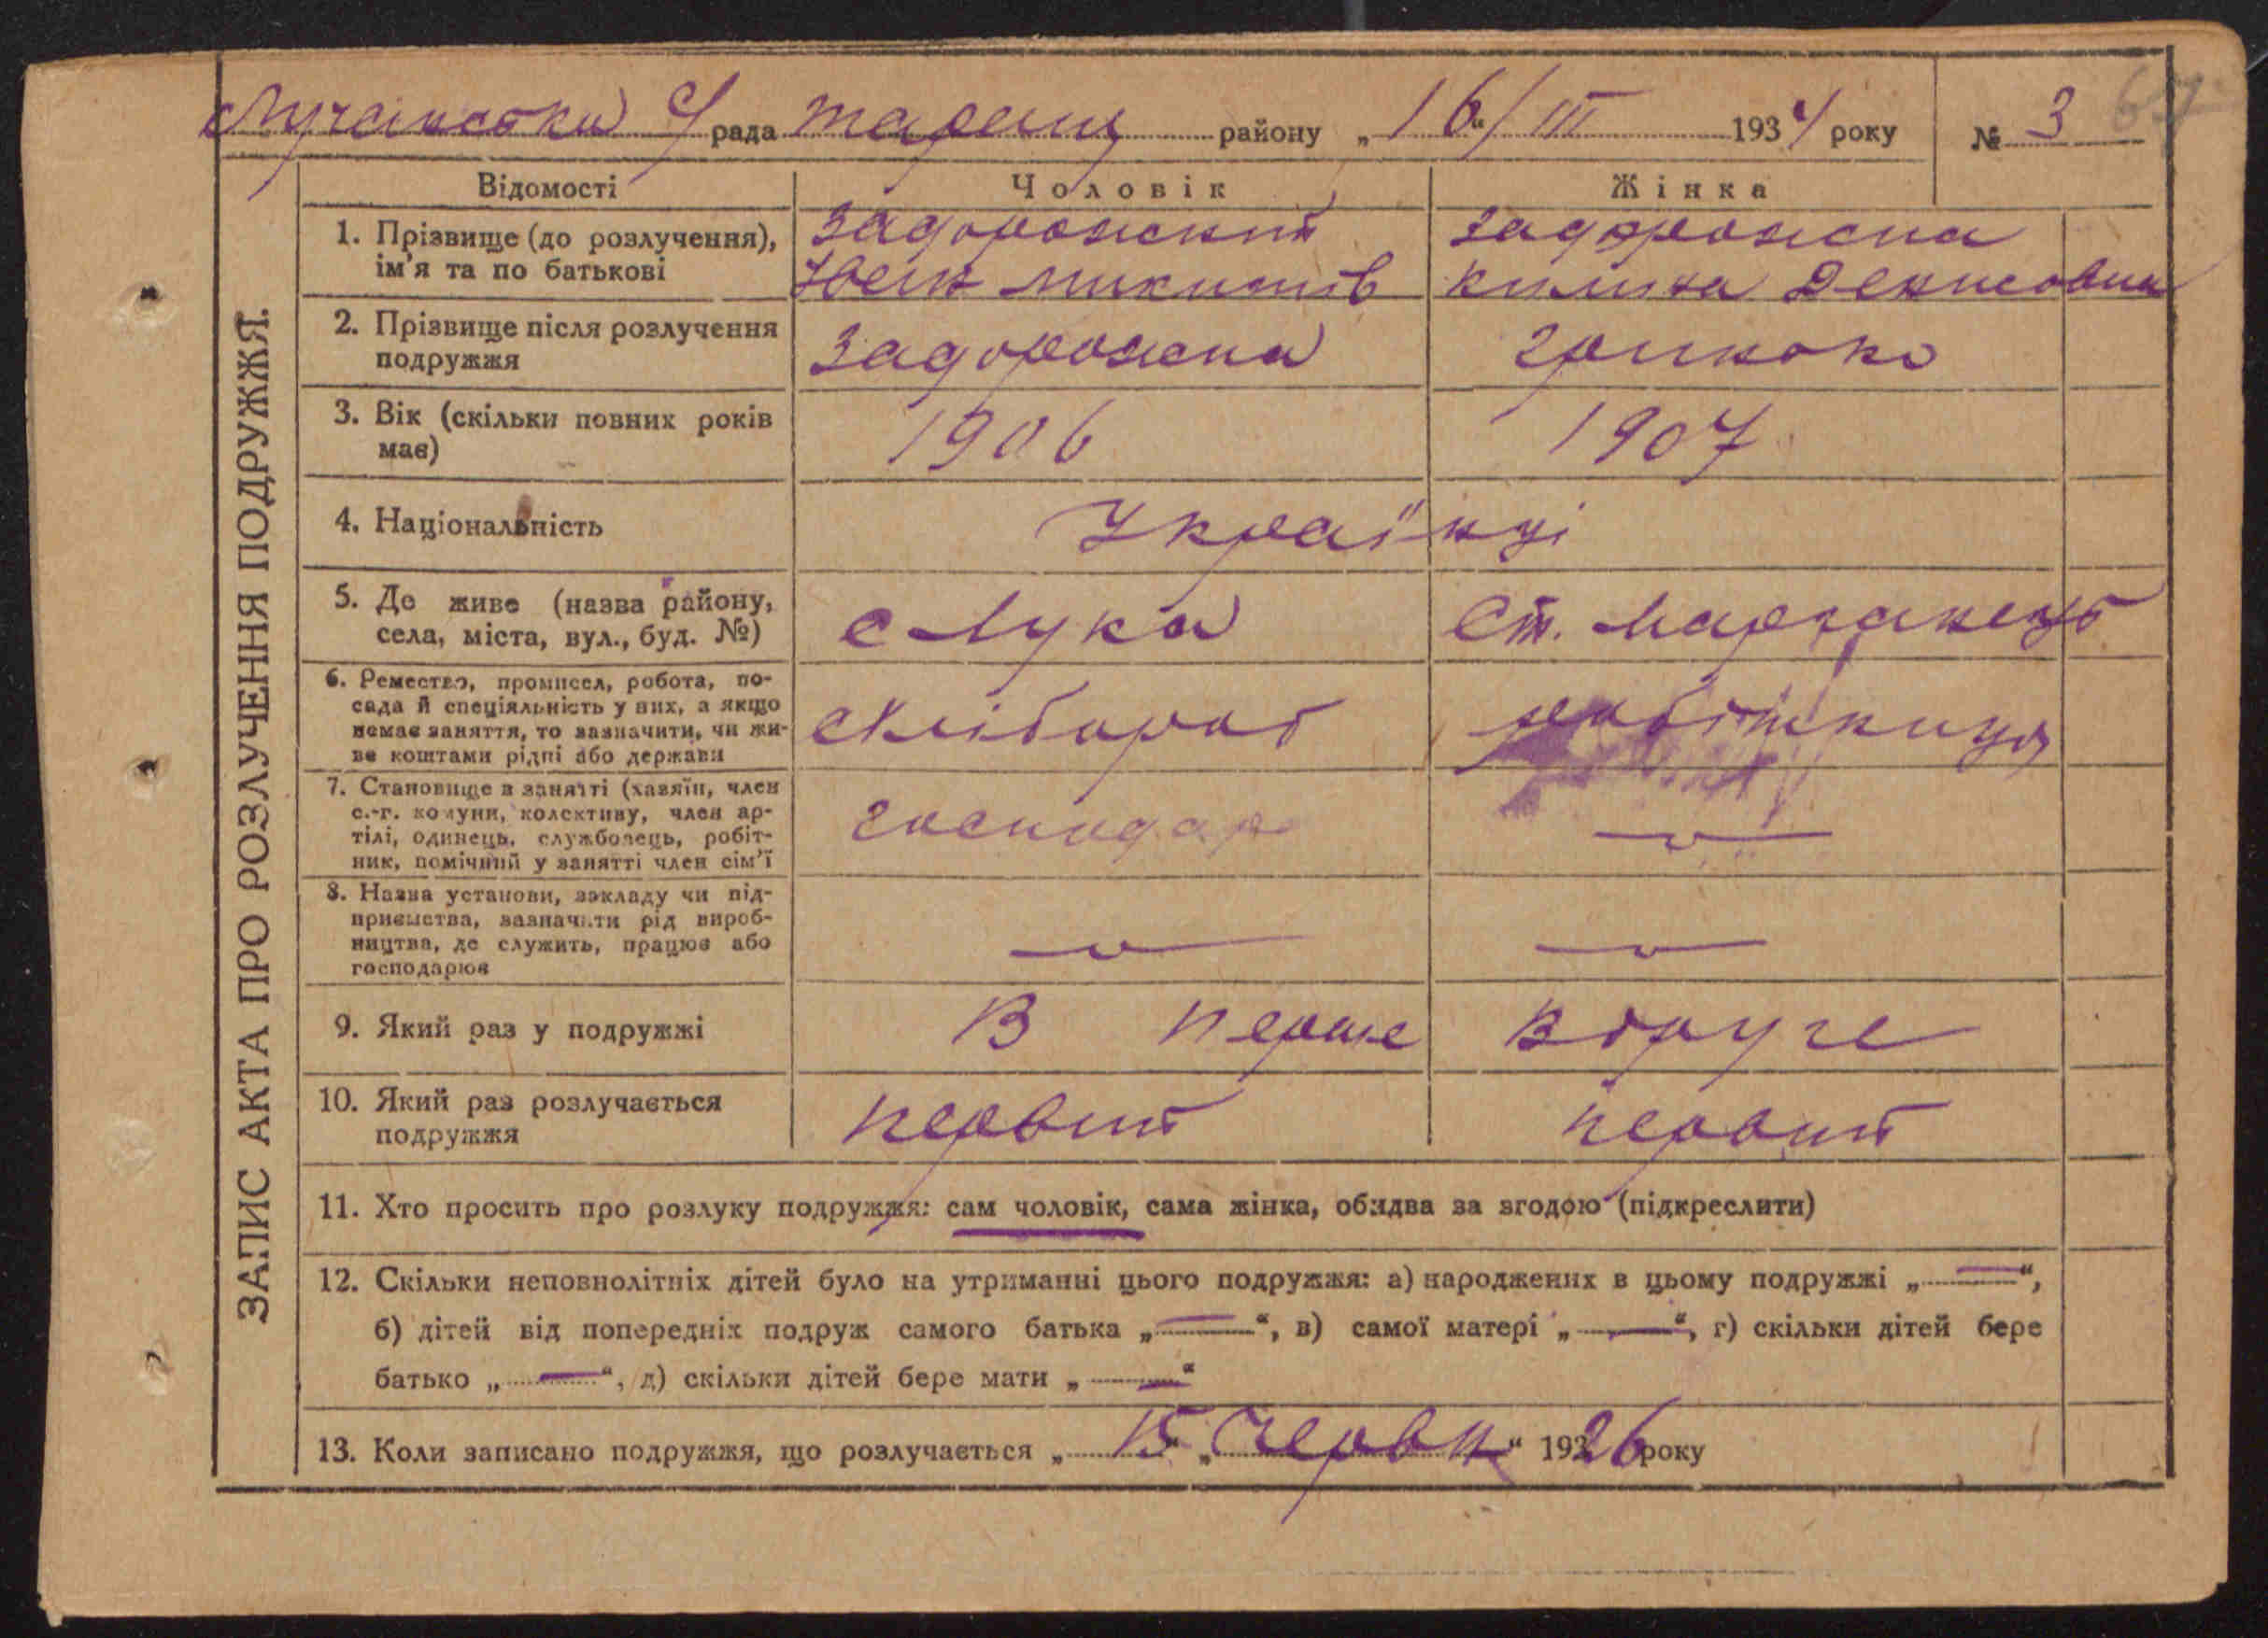 Лучанська С/рада Таращ району „16“/III 1934 року № 3
ЗАПИС АКТА ПРО РОЗЛУЧЕННЯ ПОДРУЖЖЯ.
Відомості Чоловік Жінка
1. Прізвище (до розлучення), ім'я та по батькові
Задорожний
Микитів
Задорожна
Килина Денисовна
2. Прізвище після розлучення подружжя
Задорожна
3. Вік (скільки повних років має)
1906
1907
4. Національність
Українці
5. Де живе (назва району, села, міста, вул., буд. №)
с Лука
Ст. Марганець
6. Ремество, промисел, робота, по-
сада й спеціяльність у них, а якщо
немає заняття, то зазначити, чи жи-
ве коштами рідні або держави
хлібороб
робітниця
7. Становище в занятті (хазяїн, член
с.-г. комуни, колективу, член ар-
тілі, одинець, службовець, робіт-
ник, помічний у занятті член сім'ї
господар
8. Назва установи, закладу чи під-
приємства, зазначити рід вироб-
ництва, де служить, працює або
господарює
9. Який раз у подружжі
В перше
вдруге
10. Який раз розлучається
подружжя
первий
первий
11. Хто просить про розлуку подружжя: сам чоловік, сама жінка, обидва за згодою (підкреслити)
12. Скільки неповнолітніх дітей було на утриманні цього подружжя: а) народжених в цьому подружжі „—“,
б) дітей від попередніх подруж самого батька „—“, в) самої матері „—“, г) скільки дітей бере
батько „—“, д) скільки дітей бере мати „—“
13. Коли записано подружжя, що розлучається „15“ „Червн“ 1926 року